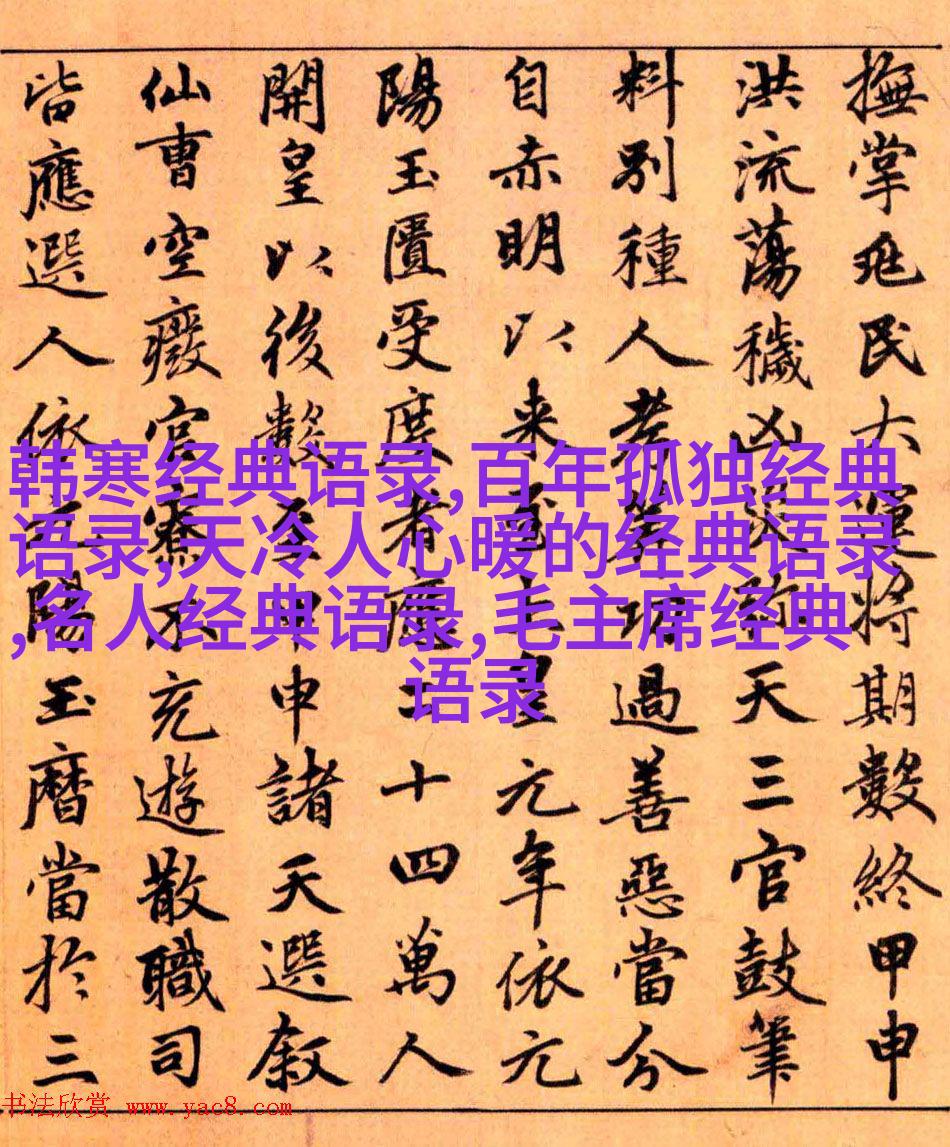 撫掌兆民大運將期數終甲申
洪流蕩穢凶災弥天三官鼓筆
料別種人考筭功過善惡當分
自赤明以来至上皇元年依元
陽玉匱受度者應二十四萬人
開皇以後數至甲申諸天選叙
仙曹空癈官寮不充遊散職司
皆應選人依元陽玉曆當於三
韩寒经典语录,百年孤独经典
语录,天冷人心暖的经典语录
,名人经典语录,毛主席经典
语录
书法欣赏 www.yac8.com